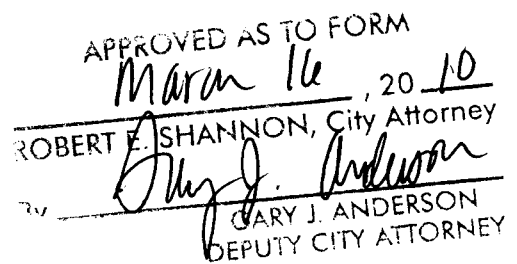 APPROVED AS TO FORM
March 16, 20 10
ROBERT E. SHANNON, City Attorney
By Gary J. Anderson
GARY J. ANDERSON
DEPUTY CITY ATTORNEY